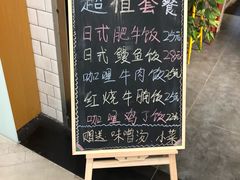 超值套餐
日式肥牛饭25元
日式鳗鱼饭28元
咖喱牛肉饭25元
红烧牛腩饭25元
咖喱鸡丁饭22元
赠送味噌汤 小菜